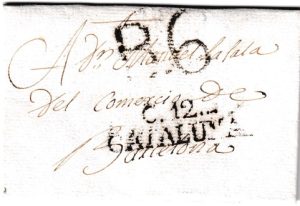 R. 6
A Dn. Manuel Lasala
del Comercio de
C. 12.
CATALUÑA
Barcelona